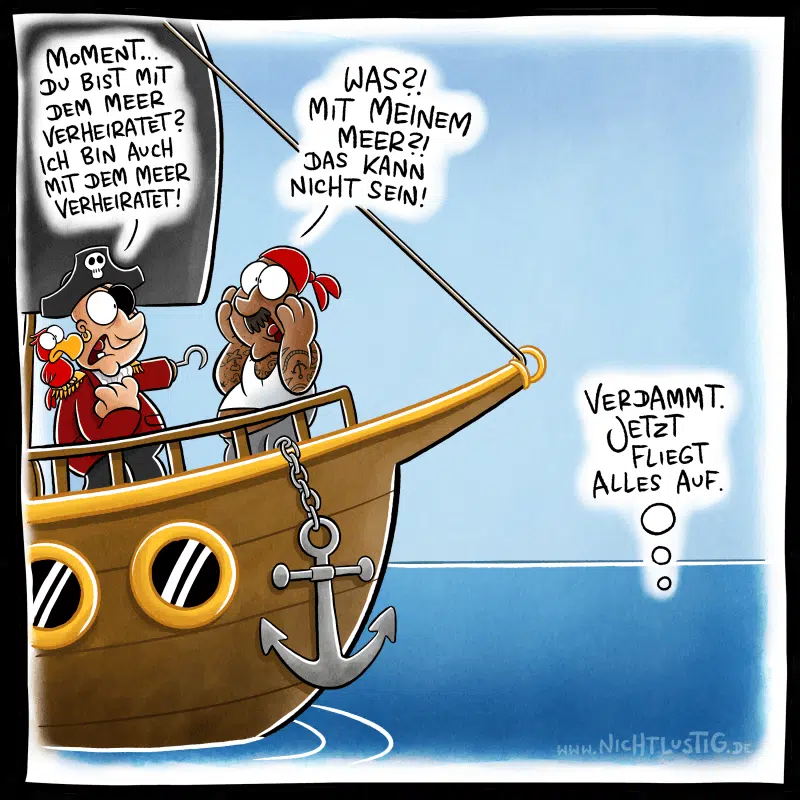 MOMENT...
DU BIST MIT
DEM MEER
VERHEIRATET?
ICH BIN AUCH
MIT DEM MEER
VERHEIRATET!
WAS?!
MIT MEINEM
MEER?!
DAS KANN
NICHT SEIN!
VERDAMMT.
JETZT
FLIEGT
ALLES AUF.
WWW.NICHTLUSTIG.DE